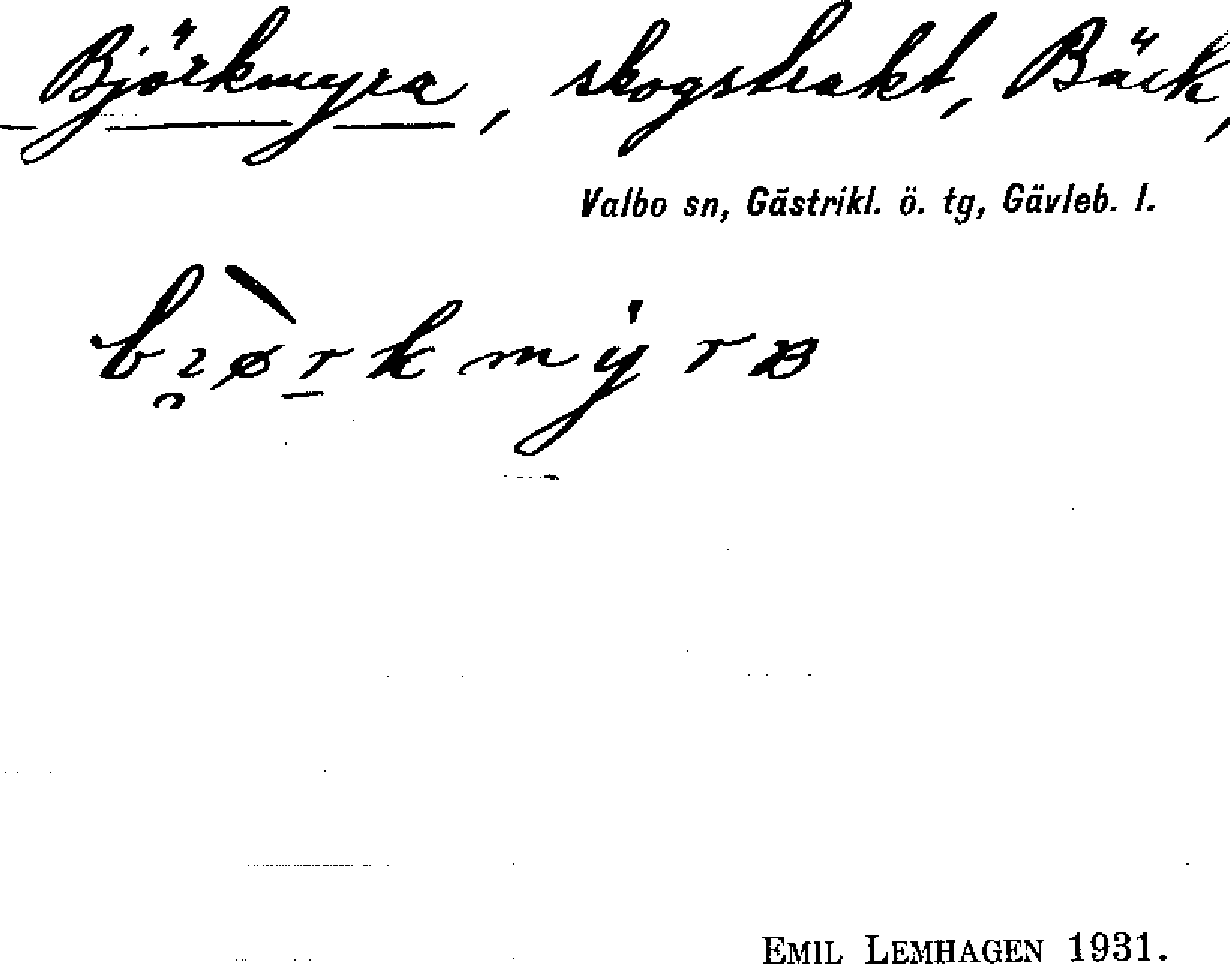 Björkmyra, skogstrakt, Bäck,
Valbo sn, Gästrikl. ö. tg, Gävleb. l.
EMIL LEMHAGEN 1931.